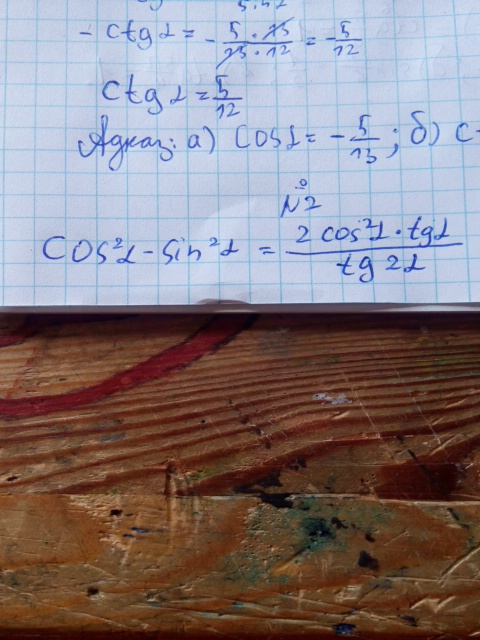 - ctg α = - 5 · 13 / 13 · 12 = - 5/12
ctg α = 5/12
Адказ: а) cos α = - 5/13; б) c
№2
cos²α - sin²α = 2 cos²α · tg α / tg 2α